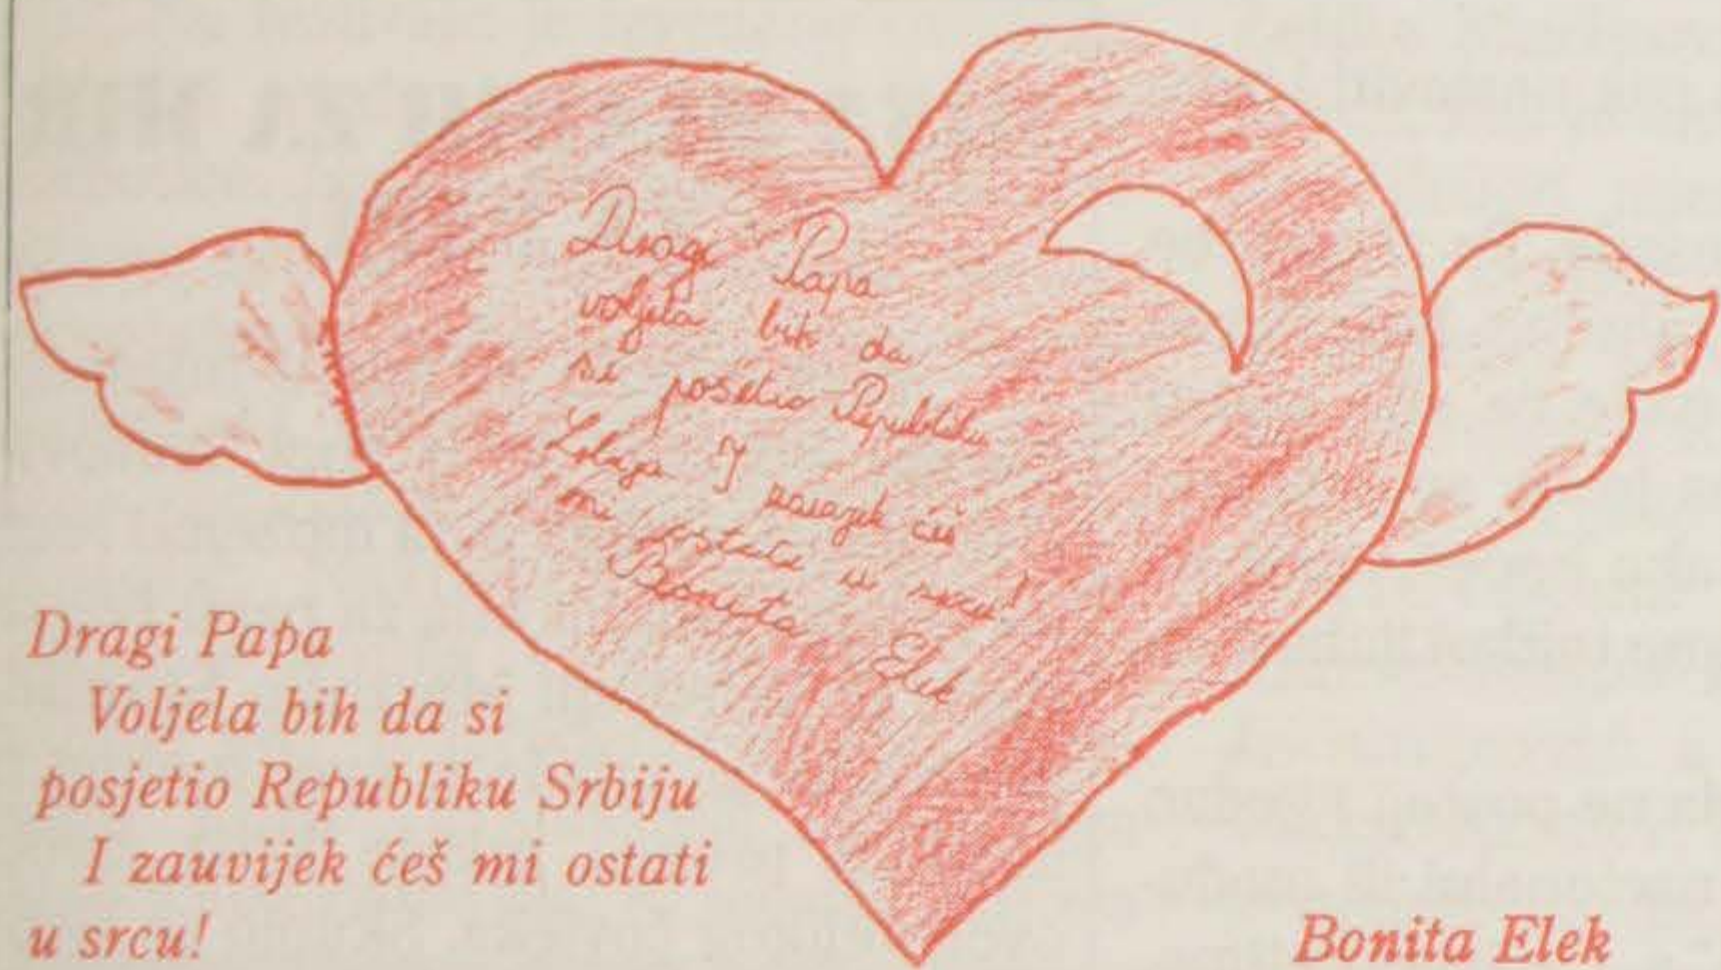 Dragi Papa
voljela bih da
si posjetio Republiku
I zauvijek ćeš
mi ostati u srcu!
Bonita Elek
Dragi Papa
Voljela bih da si
posjetio Republiku Srbiju
I zauvijek ćeš mi ostati
u srcu!
Bonita Elek